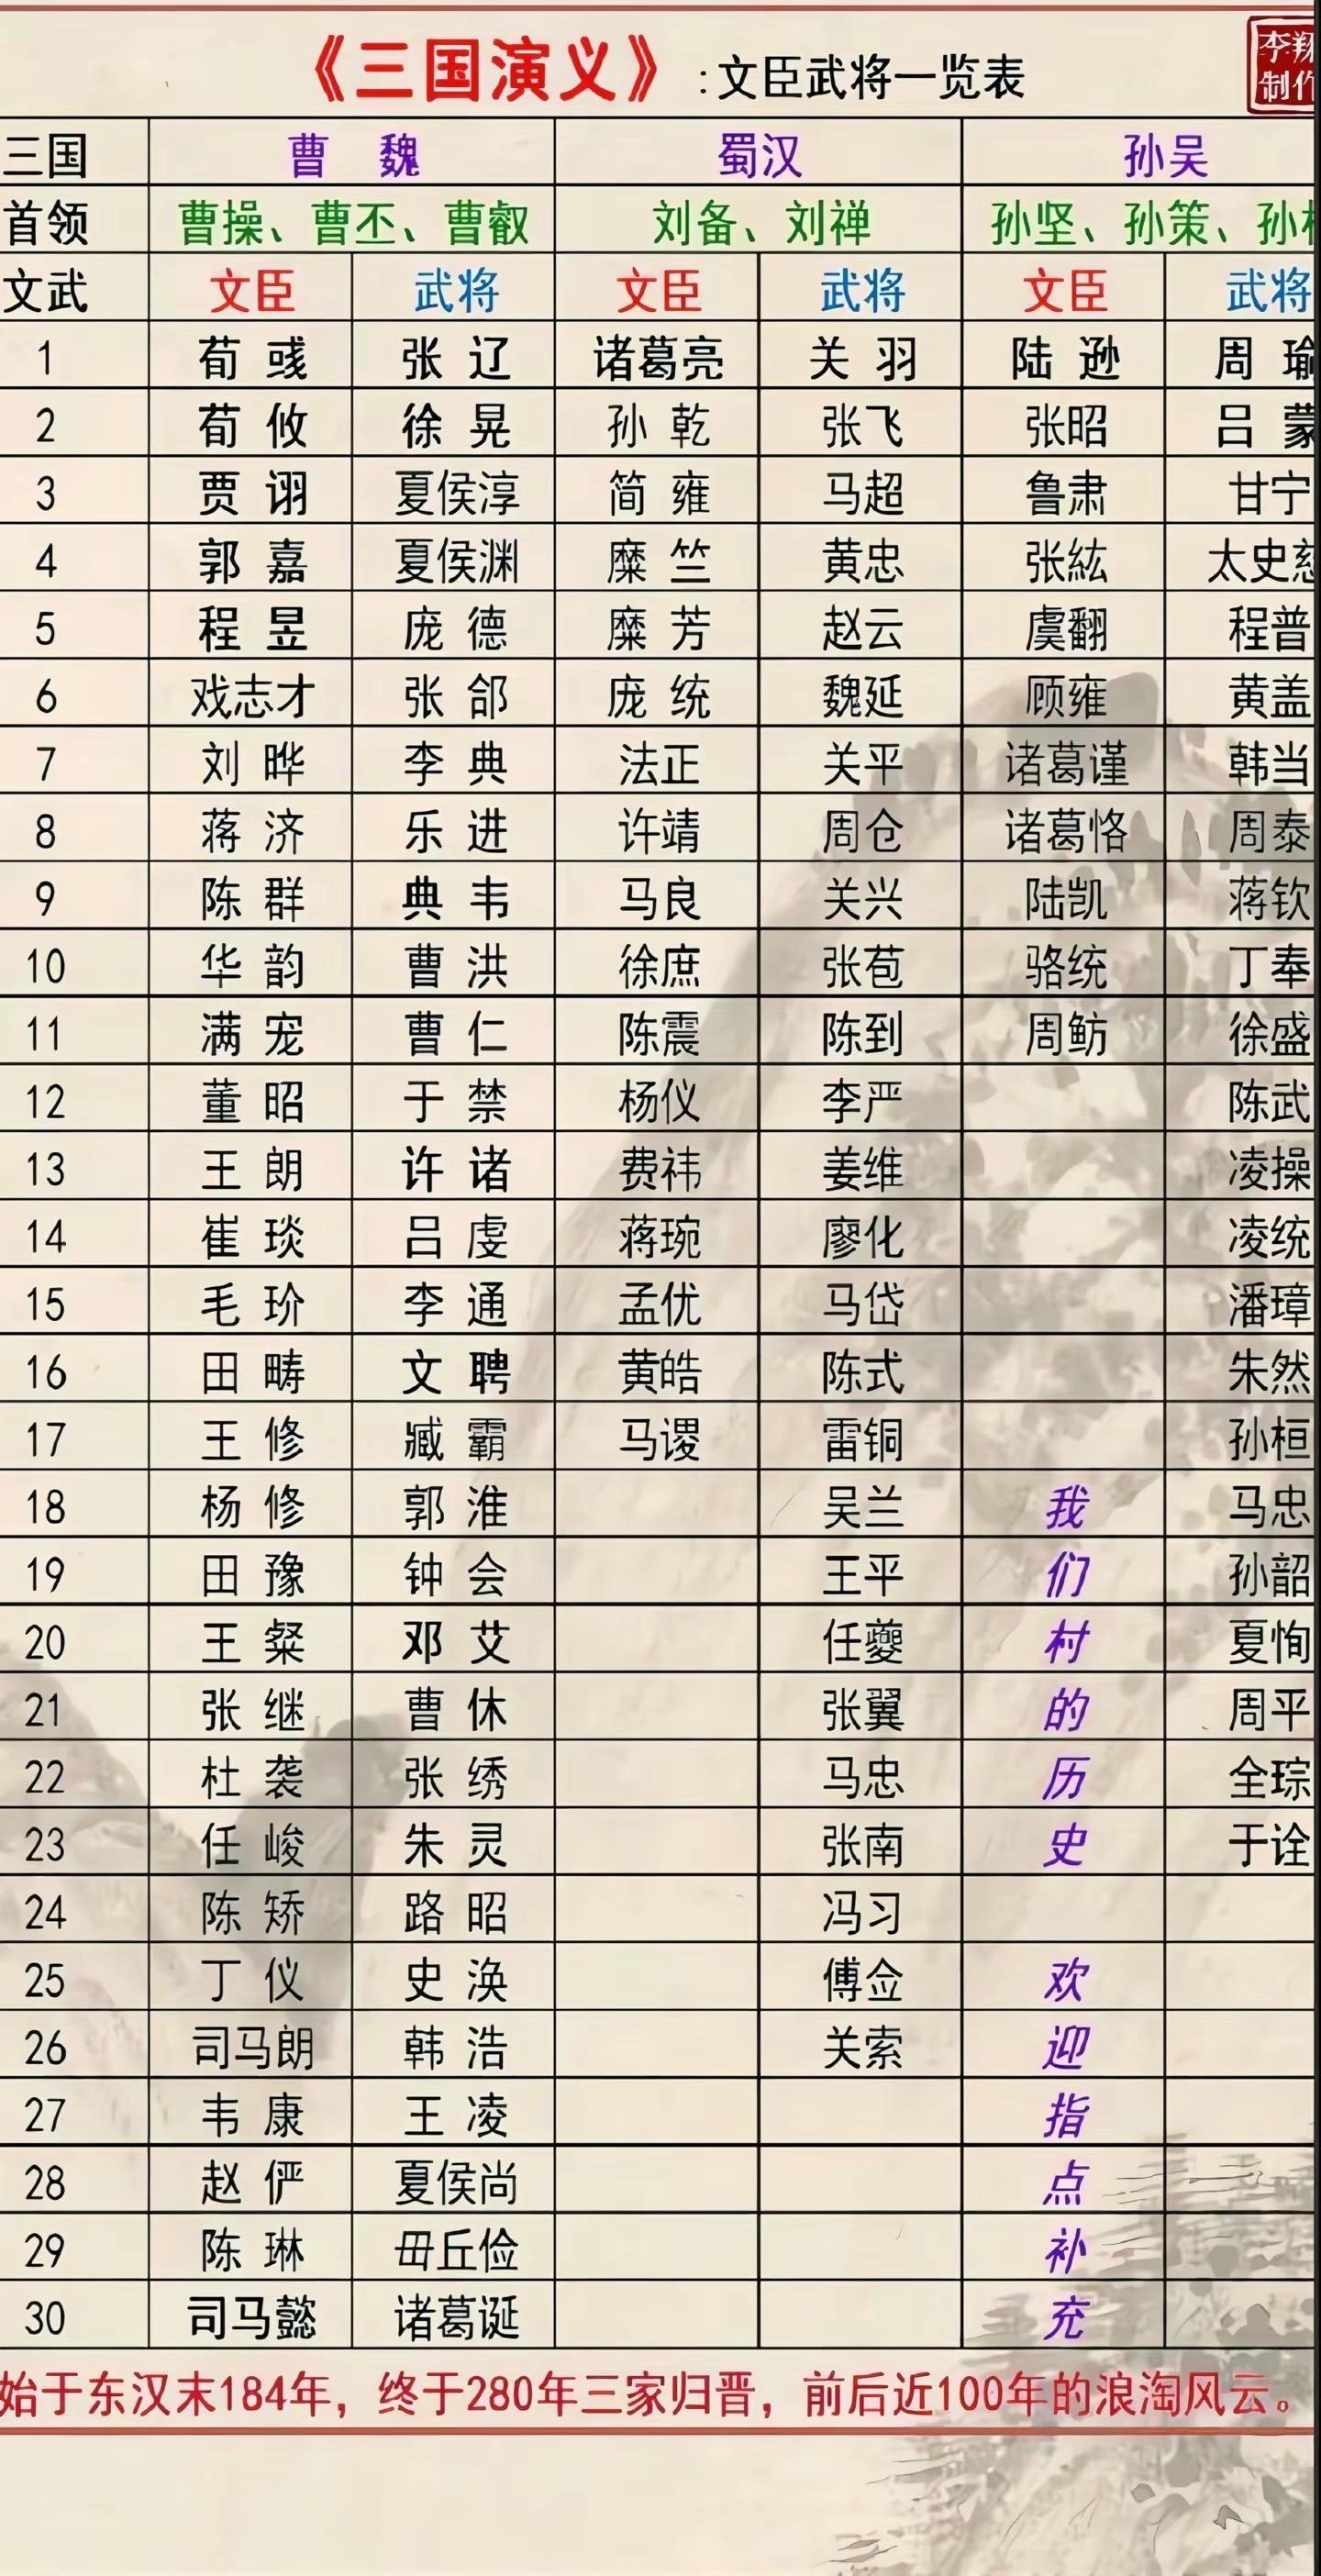 《三国演义》:文臣武将一览表
李翔
制作
三国 曹 魏 蜀汉 孙吴
首领 曹操、曹丕、曹叡 刘备、刘禅 孙坚、孙策、孙
文武 文臣 武将 文臣 武将 文臣 武将
1 荀 彧 张 辽 诸葛亮 关 羽 陆 逊 周 瑜
2 荀 攸 徐 晃 孙 乾 张飞 张昭 吕 蒙
3 贾 诩 夏侯淳 简 雍 马超 鲁肃 甘宁
4 郭 嘉 夏侯渊 糜 竺 黄忠 张紘 太史慈
5 程 昱 庞 德 糜 芳 赵云 虞翻 程普
6 戏志才 张 郃 庞 统 魏延 顾雍 黄盖
7 刘 晔 李 典 法正 关平 诸葛谨 韩当
8 蒋 济 乐 进 许靖 周仓 诸葛恪 周泰
9 陈 群 典 韦 马良 关兴 陆凯 蒋钦
10 华 韵 曹 洪 徐庶 张苞 骆统 丁奉
11 满 宠 曹 仁 陈震 陈到 周鲂 徐盛
12 董 昭 于 禁 杨仪 李严 陈武
13 王 朗 许 诸 费祎 姜维 凌操
14 崔 琰 吕 虔 蒋琬 廖化 凌统
15 毛 玠 李 通 孟优 马岱 潘璋
16 田 畴 文 聘 黄皓 陈式 朱然
17 王 修 臧 霸 马谡 雷铜 孙桓
18 杨 修 郭 淮 吴兰 我 马忠
19 田 豫 钟 会 王平 们 孙韶
20 王 粲 邓 艾 任夔 村 夏恂
21 张 继 曹 休 张翼 的 周平
22 杜 袭 张 绣 马忠 历 全琮
23 任 峻 朱 灵 张南 史 于诠
24 陈 矫 路 昭 冯习
25 丁 仪 史 涣 傅佥 欢
26 司马朗 韩 浩 关索 迎
27 韦 康 王 凌 指
28 赵 俨 夏侯尚 点
29 陈 琳 毌丘俭 补
30 司马懿 诸葛诞 充
始于东汉末184年，终于280年三家归晋，前后近100年的浪淘风云。